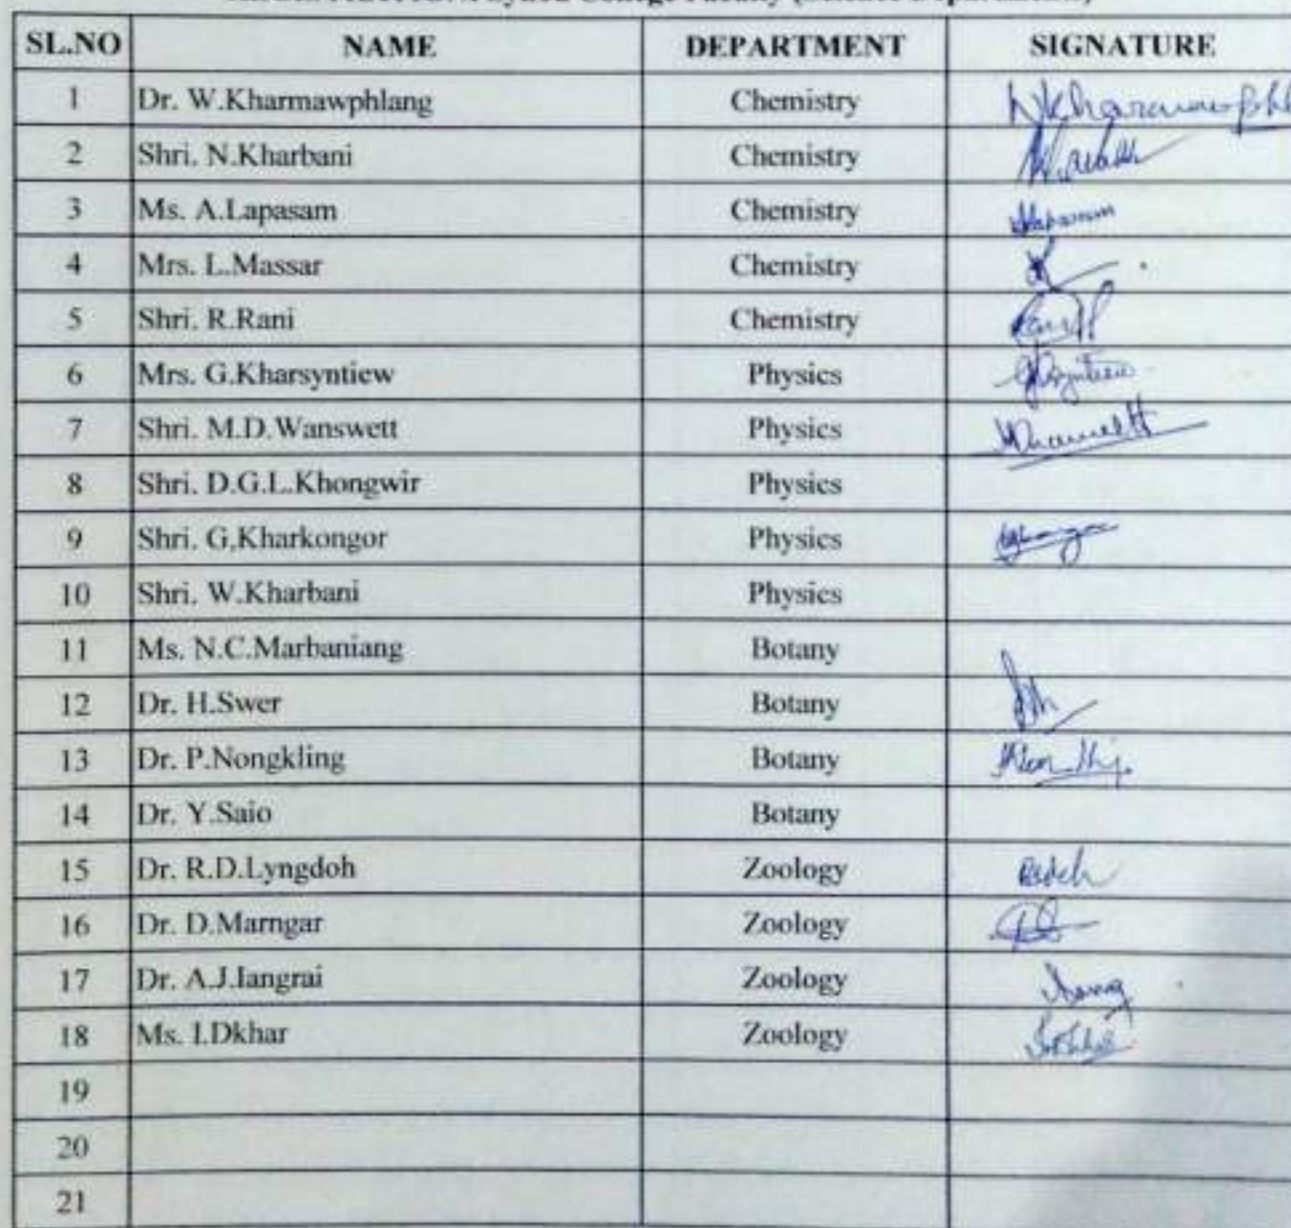 College Faculty (Science Departments)
SL.NO NAME DEPARTMENT SIGNATURE
1 Dr. W.Kharmawphlang Chemistry
2 Shri. N.Kharbani Chemistry
3 Ms. A.Lapasam Chemistry
4 Mrs. L.Massar Chemistry
5 Shri. R.Rani Chemistry
6 Mrs. G.Kharsyntiew Physics
7 Shri. M.D.Wanswett Physics
8 Shri. D.G.L.Khongwir Physics
9 Shri. G,Kharkongor Physics
10 Shri. W.Kharbani Physics
11 Ms. N.C.Marbaniang Botany
12 Dr. H.Swer Botany
13 Dr. P.Nongkling Botany
14 Dr. Y.Saio Botany
15 Dr. R.D.Lyngdoh Zoology
16 Dr. D.Marngar Zoology
17 Dr. A.J.Iangrai Zoology
18 Ms. I.Dkhar Zoology
19
20
21